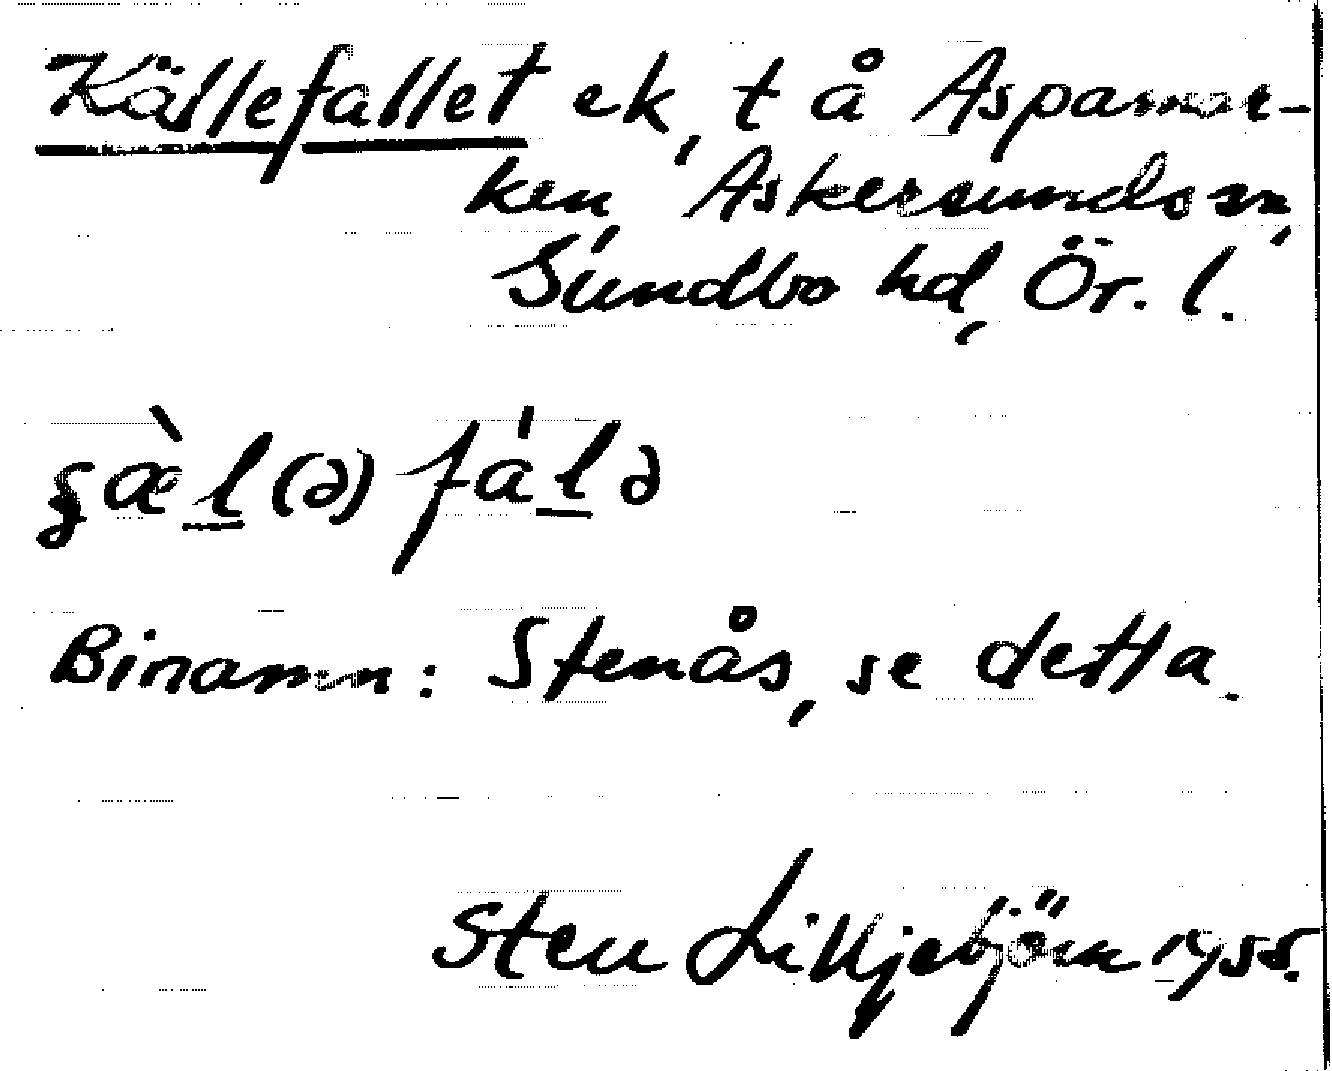 Källefallet ek, t å Aspamar-
ken, Askersunds sn,
Sundbo hd, Ör. l.
ɕæ̀l(ə)fálə
Binamn: Stenås, se detta.
Sten Liljebjörn 1955.